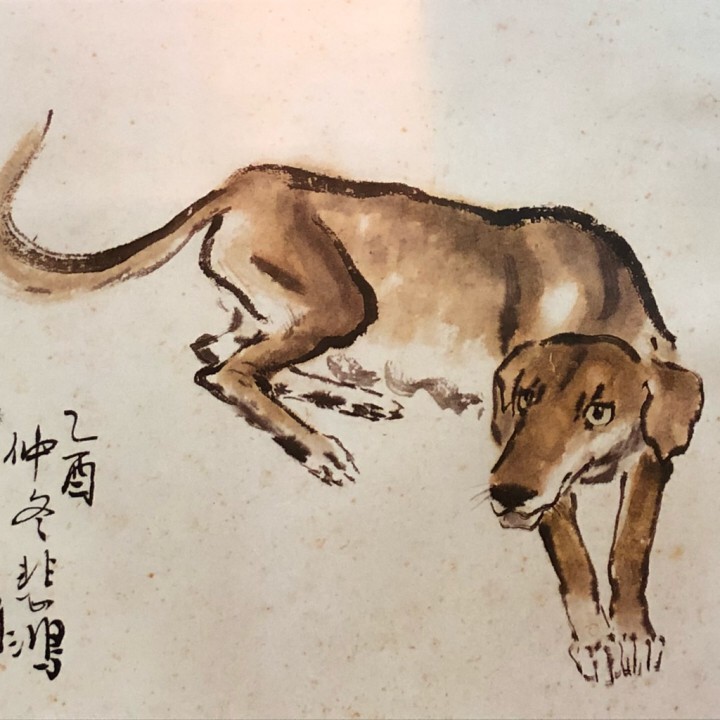 乙酉
仲冬悲鸿